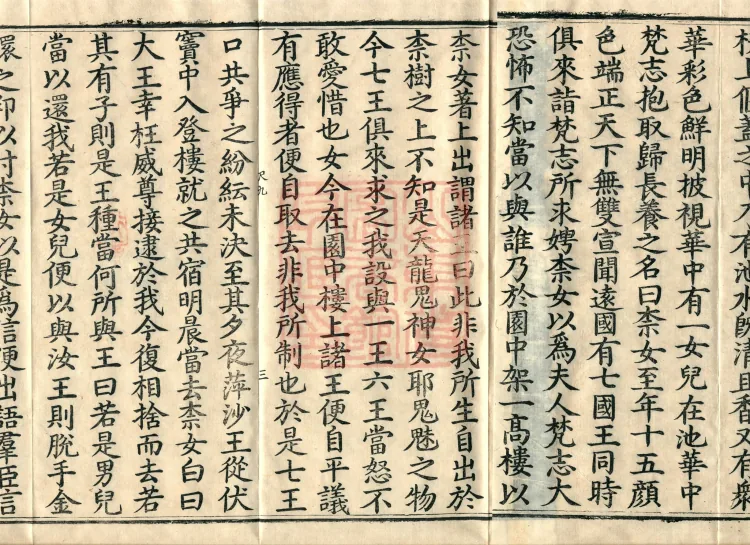 之中 有池水 清且香又有衆
華彩色鮮明披視華中有一女兒在池華中
梵志抱取歸長養之名曰柰女至年十五顔
色端正天下無雙宣聞遠國有七國王同時
俱來詣梵志所求娉柰女以爲夫人梵志大
恐怖不知當以與誰乃於園中架一高樓以
柰女著上出謂諸王曰此非我所生自出於
柰樹之上不知是天龍鬼神女耶鬼魅之物
今七王俱來求之我設與一王六王當怒不
敢愛惜也女今在園中樓上諸王便自平議
有應得者便自取去非我所制也於是七王
三
口共爭之紛紜未決至其夕夜萍沙王從伏
竇中入登樓就之共宿明晨當去柰女白曰
大王幸枉威尊接逮於我今復相捨而去若
其有子則是王種當何所與王曰若是男兒
當以還我若是女兒便以與汝王則脫手金
環之印以付柰女以是爲信便出語羣臣言